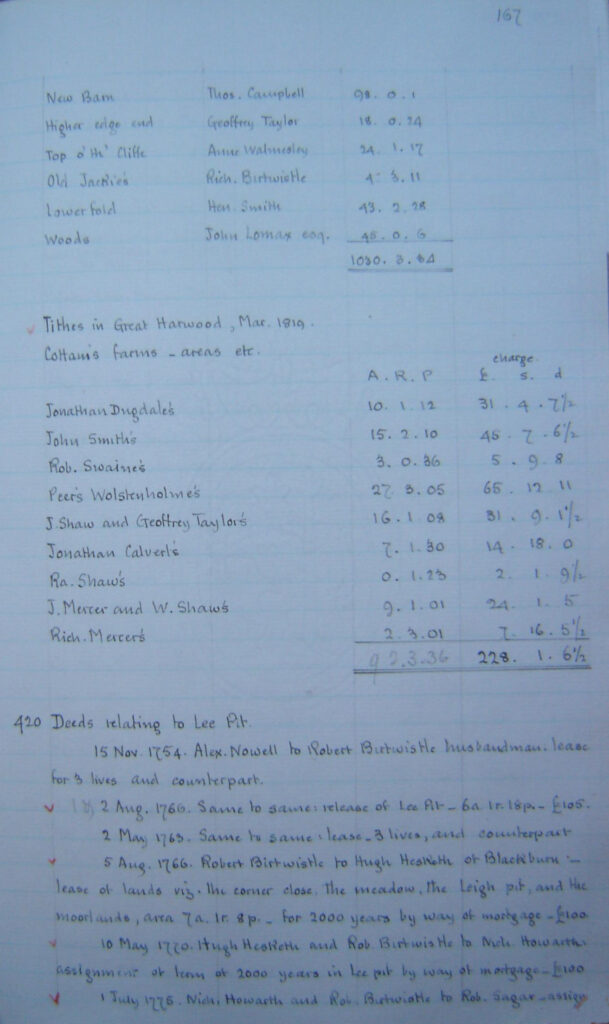 167
New Barn Thos. Campbell 98. 0. 1
Higher edge end Geoffrey Taylor 18. 0. 24
Top o' th' Cliffe Anne Walmesley 24. 1. 17
Old Jackie's Rich. Birtwistle 4. 3. 11
Lowerfold Hen. Smith 43. 2. 28
Woods John Lomax esq. 45. 0. 6
1030. 3. 34
Tithes in Great Harwood, Mar. 1819.
Cottam's farms - areas etc.
charge
A. R. P £. s. d
Jonathan Dugdale's 10. 1. 12 31. 4. 7½
John Smith's 15. 2. 10 45. 7. 6½
Rob. Swaine's 3. 0. 36 5. 9. 8
Peer's Wolstenholme's 27. 3. 05 65. 12. 11
J. Shaw and Geoffrey Taylor's 16. 1. 08 31. 9. 1½
Jonathan Calvert's 7. 1. 30 14. 18. 0
Ra. Shaw's 0. 1. 23 2. 1. 9½
J. Mercer and W. Shaw's 9. 1. 01 24. 1. 5
Rich. Mercer's 2. 3. 01 7. 16. 5½
92. 3. 36 228. 1. 6½
420 Deeds relating to Lee Pit.
15 Nov. 1754. Alex. Nowell to Robert Birtwistle husbandman. lease
for 3 lives and counterpart.
2 Aug. 1766. Same to same: release of Lee Pit - 6a. 1r. 18p. - £105.
2 May 1763. Same to same: lease - 3 lives, and counterpart
5 Aug. 1766. Robert Birtwistle to Hugh Hesketh of Blackburn :-
lease of lands viz. the corner close, the meadow, the Leigh pit, and the
moorlands, area 7a. 1r. 8p. - for 2000 years by way of mortgage - £100.
10 May 1770. Hugh Hesketh and Rob. Birtwistle to Nich. Howarth.
assignment of term of 2000 years in Lee pit by way of mortgage - £100
1 July 1775. Nich. Howarth and Rob. Birtwistle to Rob. Sagar - assign